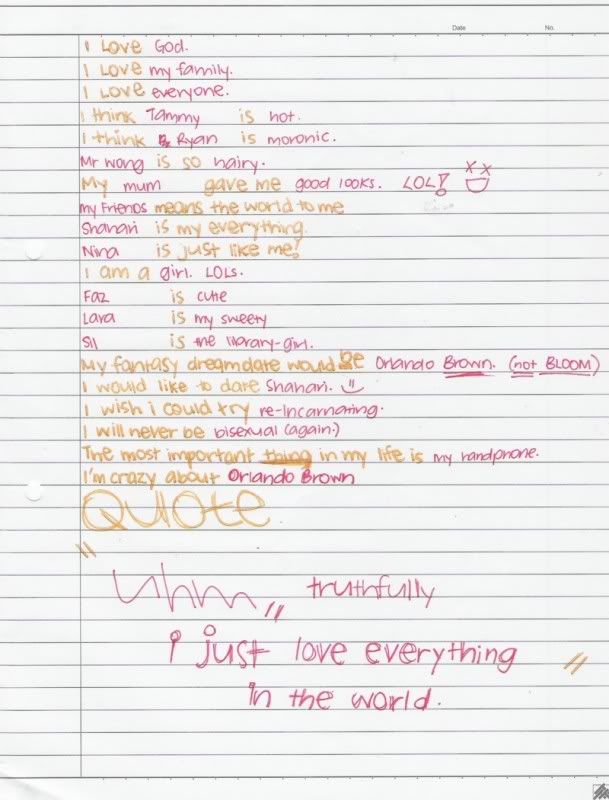 Date No.
I LOVE God.
I LOVE my family.
I LOVE everyone.
I think Tammy is hot.
I think Ryan is moronic.
Mr wong is so hairy.
My mum gave me good looks. LOL!
my Friends means the world to me
Shahari is my everything.
Nina is just like me!
I am a girl. LOLs.
Faz is cute
Lara is my sweety
Sli is the library-girl.
My fantasy dreamdate would be Orlando Brown. (not BLOOM)
I would like to date Shahari.
I wish i could try re-incarnating.
I will never be bisexual (again.)
The most important thing in my life is my handphone.
I'm crazy about Orlando Brown
QUOTE
"
uhm,, truthfully
i just love everything "
in the world.